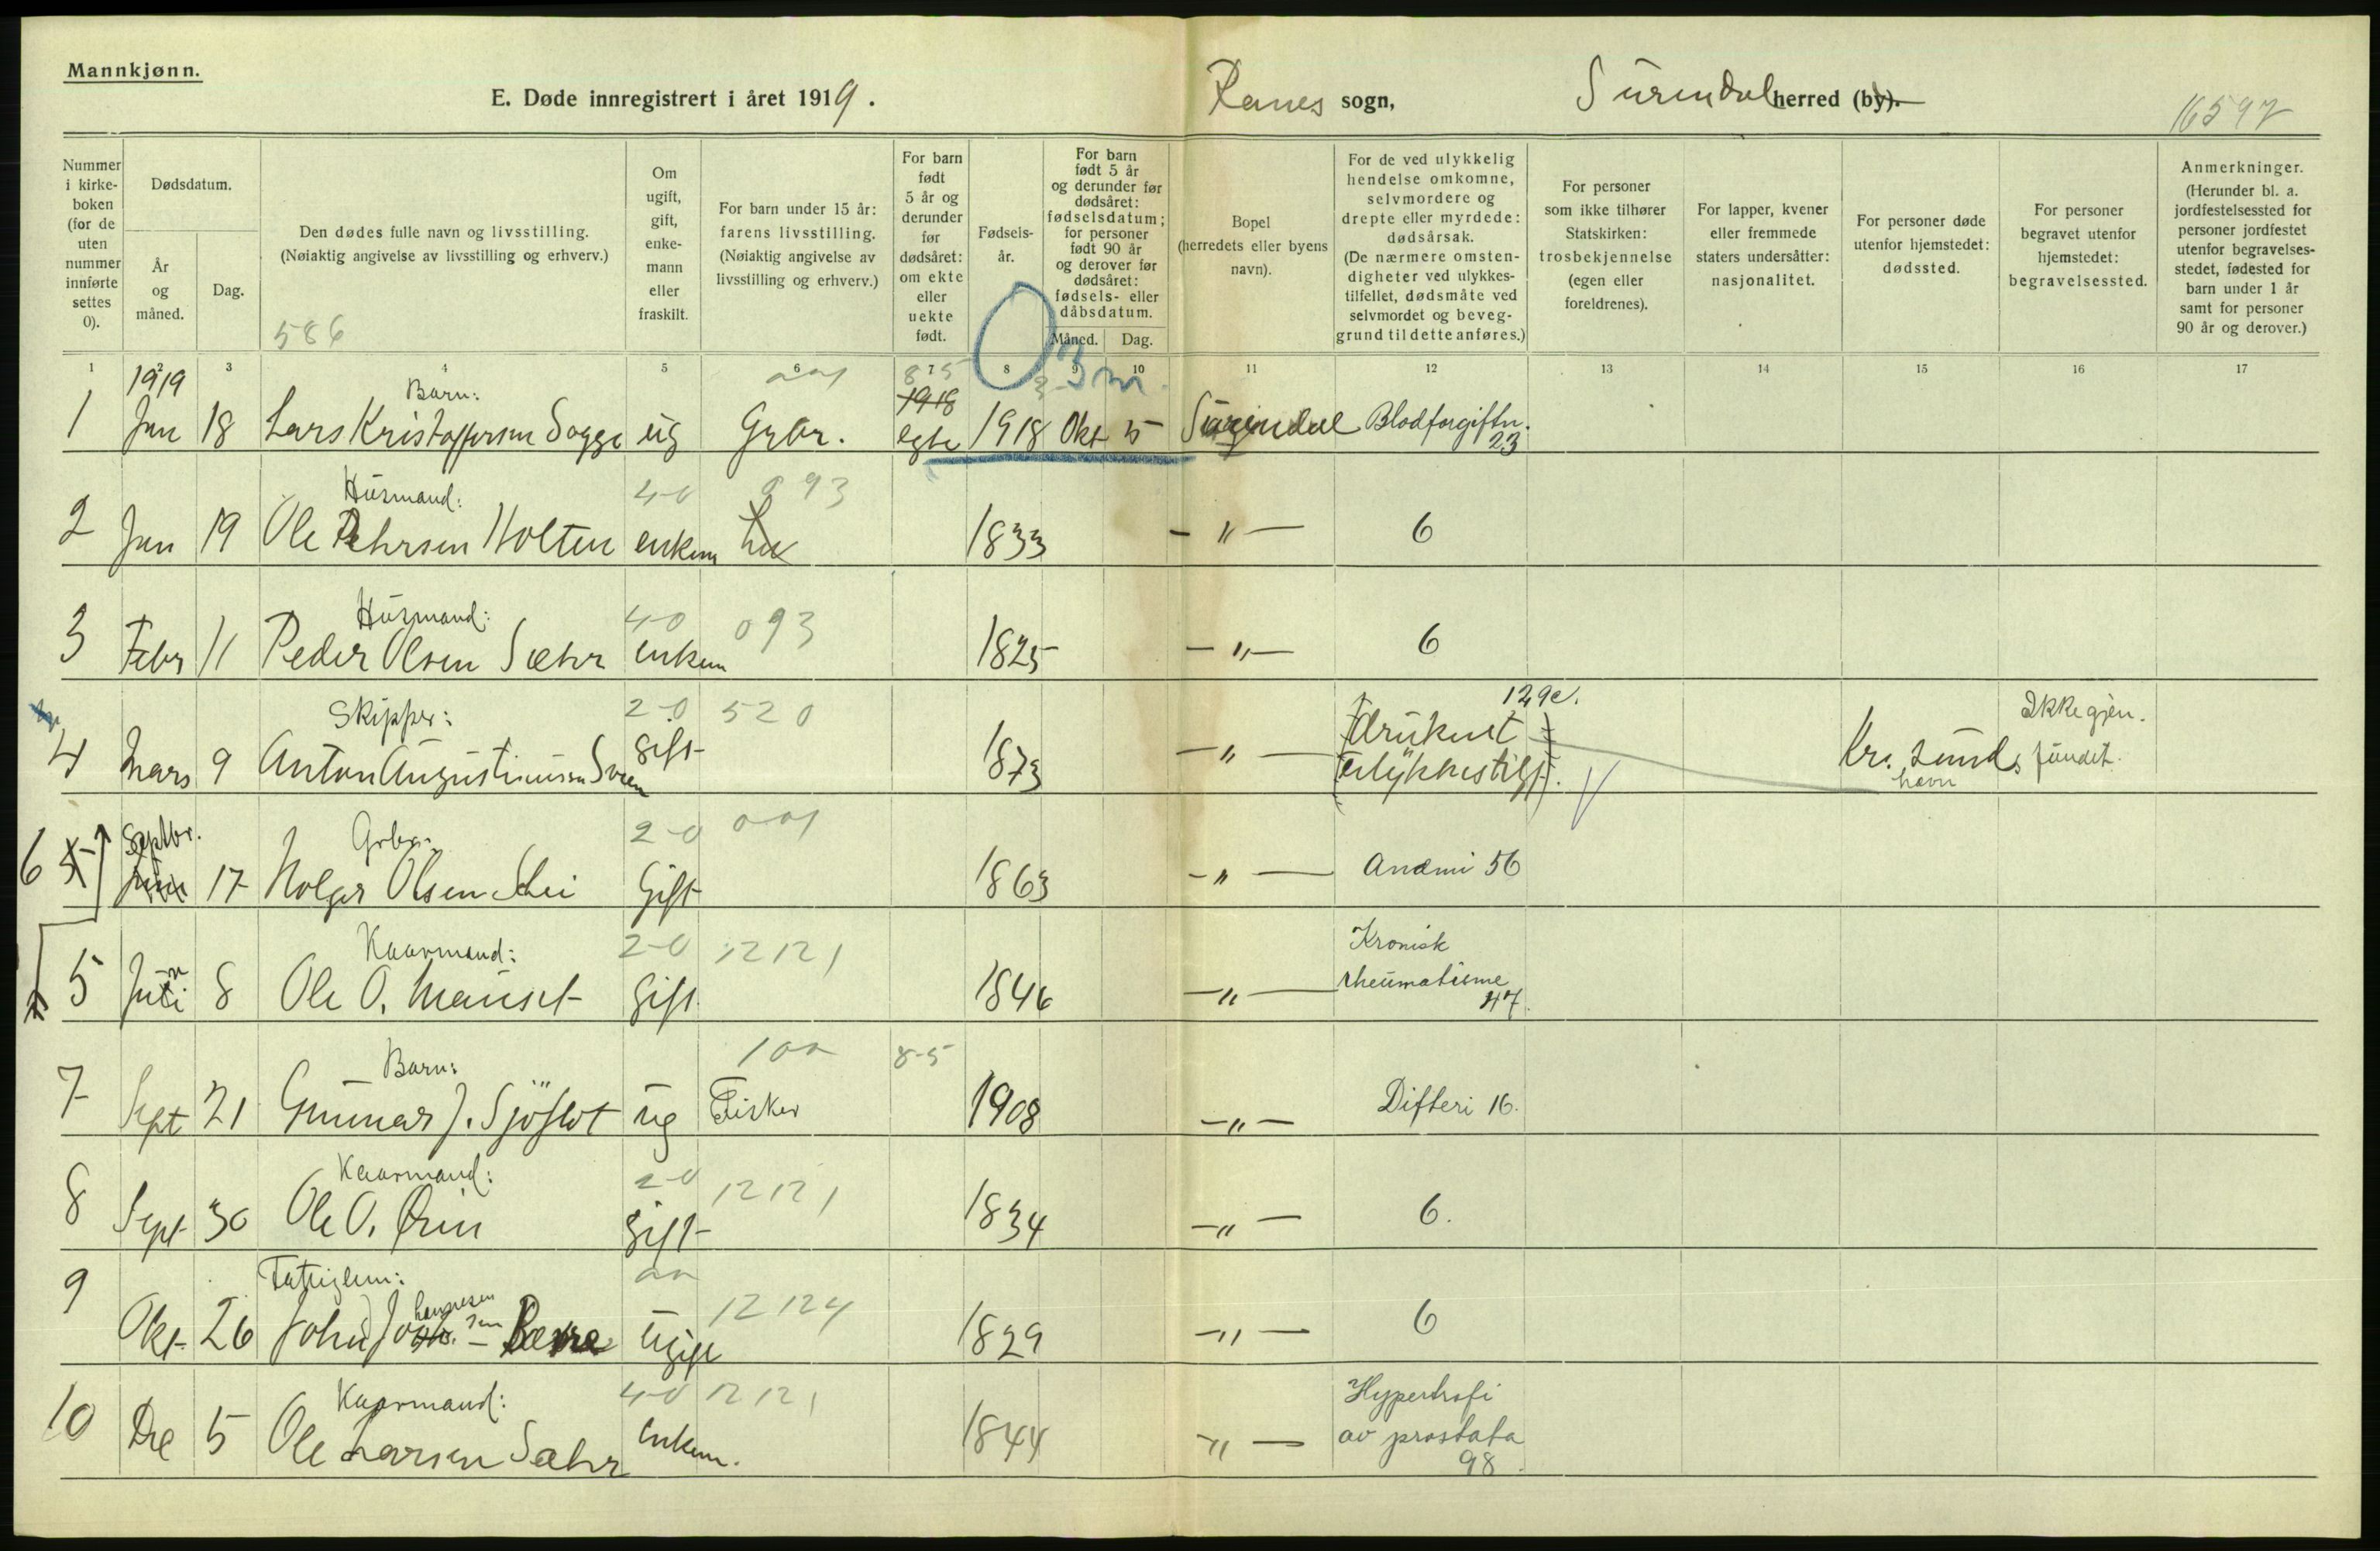 Mannkjønn.
E. Døde innregistrert i året 1919.
Ranes sogn,
Surendal herred (by).
16597
Nummer i kirke-boken (for de uten nummer innførte settes 0).
Dødsdatum.
År og måned.
Dag.
Den dødes fulle navn og livsstilling.
(Nøiaktig angivelse av livsstilling og erhverv.)
586
Om ugift, gift, enke-mann eller fraskilt.
For barn under 15 år: farens livsstilling.
(Nøiaktig angivelse av livsstilling og erhverv.)
For barn født 5 år og derunder før dødsåret: om ekte eller uekte født.
Fødsels-år.
For barn født 5 år og derunder før dødsåret: fødselsdatum; for personer født 90 år og derover før dødsåret: fødsels- eller dåbsdatum.
Måned. Dag.
Bopel (herredets eller byens navn).
For de ved ulykkelig hendelse omkomne, selvmordere og drepte eller myrdede: dødsårsak.
(De nærmere omsten-digheter ved ulykkes-tilfellet, dødsmåte ved selvmordet og beveg-grund til dette anføres.)
For personer som ikke tilhører Statskirken: trosbekjennelse (egen eller foreldrenes).
For lapper, kvener eller fremmede staters undersåtter: nasjonalitet.
For personer døde utenfor hjemstedet: dødssted.
For personer begravet utenfor hjemstedet: begravelsessted.
Anmerkninger.
(Herunder bl. a. jordfestelsessted for personer jordfestet utenfor begravelses-stedet, fødested for barn under 1 år samt for personer 90 år og derover.)
1 2 3 4 5 6 7 8 9 10 11 12 13 14 15 16 17
1919 Barn: 001 85 0 3 m
1918
1 Jan 18 Lars Kristoffersen Sogge ug Grbr. egte 1918 Okt 5 Surendal Blodforgiftn. 23
Husmand: 4-0 093
2 Jan 19 Ole Pehrsen Holten enkem 1833 - " - 6
Husmand: 4-0 093
3 Febr 11 Peder Olsen Sæhr enkem 1825 - " - 6
Skipper: 2-0 520 129e. Ikke gjen.
4 Mars 9 Anton Augustinussen gift 1873 - " - (druknet) (ulykkestilf). Kr. sunds havn fundet.
Septbr. Grbr. 2-0 001
6 5 17 Holger Olsen gift 1863 - " - Anæmi 56
Kaarmand: 2-0 12121 Kronisk
5 Juni 8 Ole O. Mauset gift 1846 - " - rheumatisme 47.
Barn: 100 8-5
7 Sept 21 Gunnar J. Sjöflot ug Fisker 1908 - " - Difteri 16.
Kaarmand: 2-0 12121
8 Sept 30 Ole O. Øien gift 1834 - " - 6.
Fattiglem: 00 12124
9 Okt 26 John Johannesen Bævre ugift 1829 - " - 6
Kaarmand: 4-0 12121 Hypertrofi
10 De 5 Ole Larsen Sæhr enkem. 1844 - " - av prostata
98.